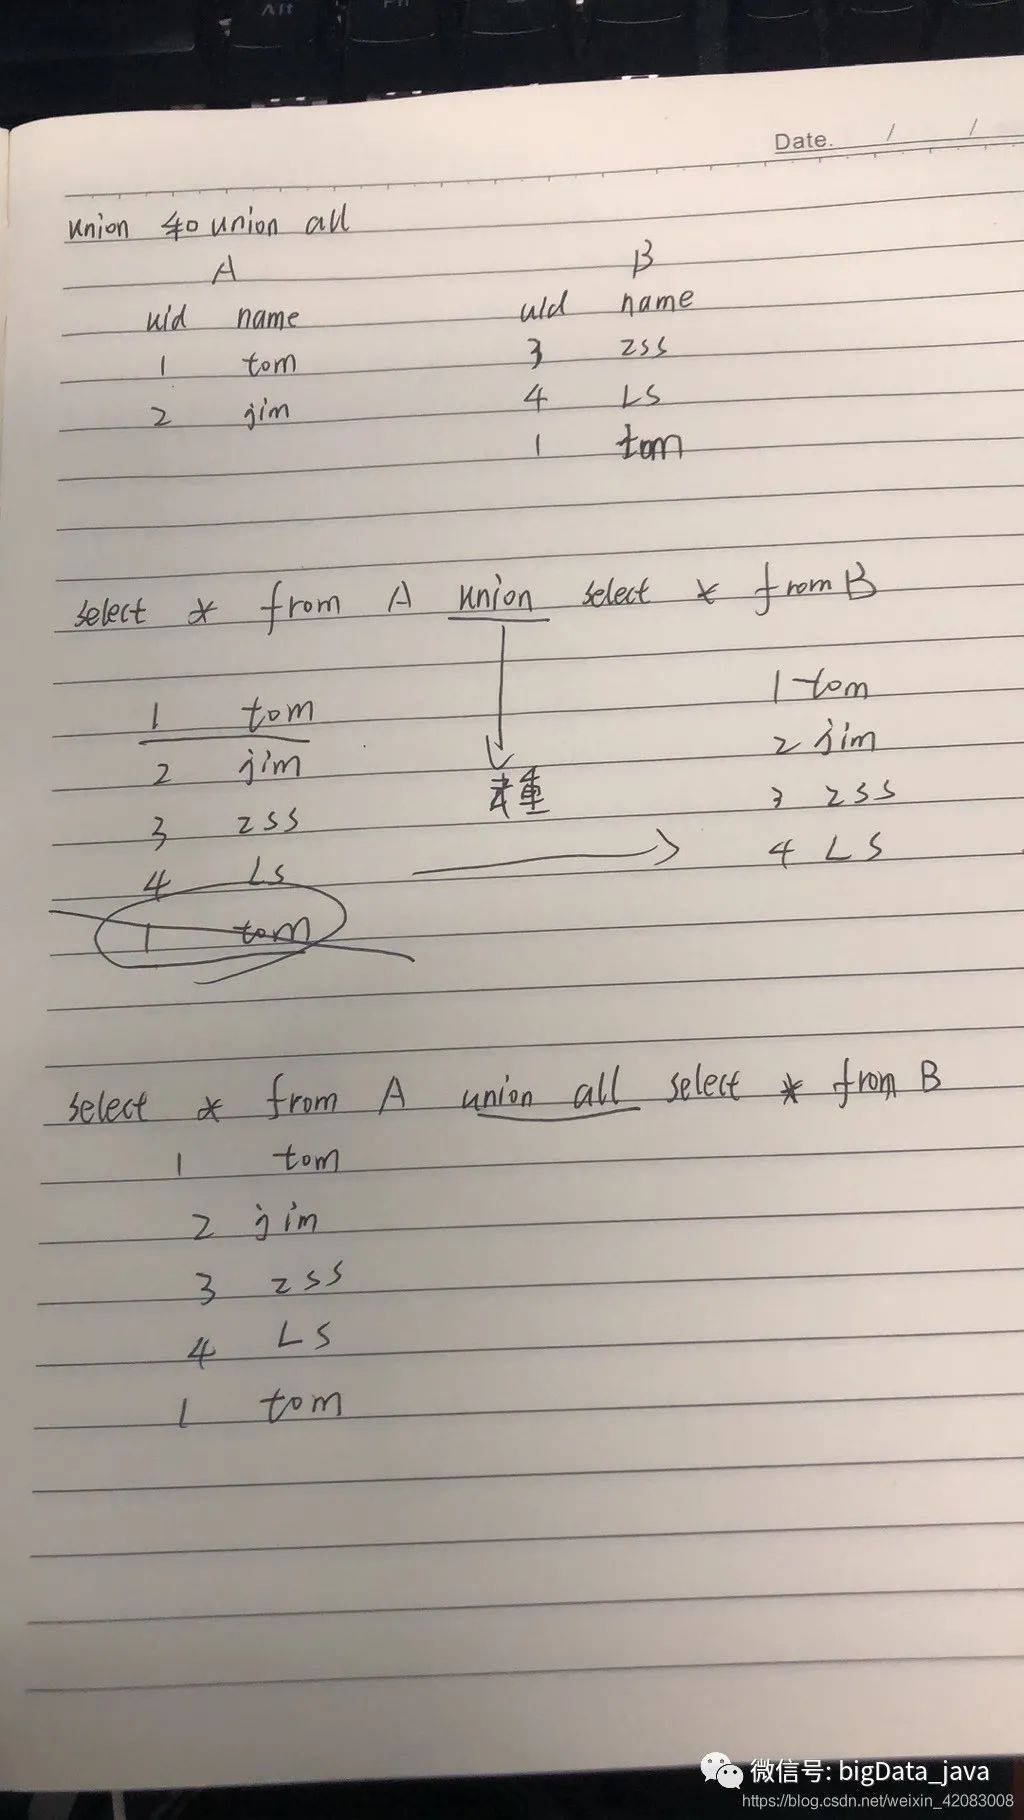 Alt
Date. / /
union 和 union all
A B
uid name uid name
1 tom 3 zss
2 jim 4 LS
1 tom
select * from A union select * from B
1 tom 1 tom
2 jim 去重 2 jim
3 zss 3 zss
4 LS 4 LS
1 tom
select * from A union all select * from B
1 tom
2 jim
3 zss
4 LS
1 tom
微信号: bigData_java
https://blog.csdn.net/weixin_42083008